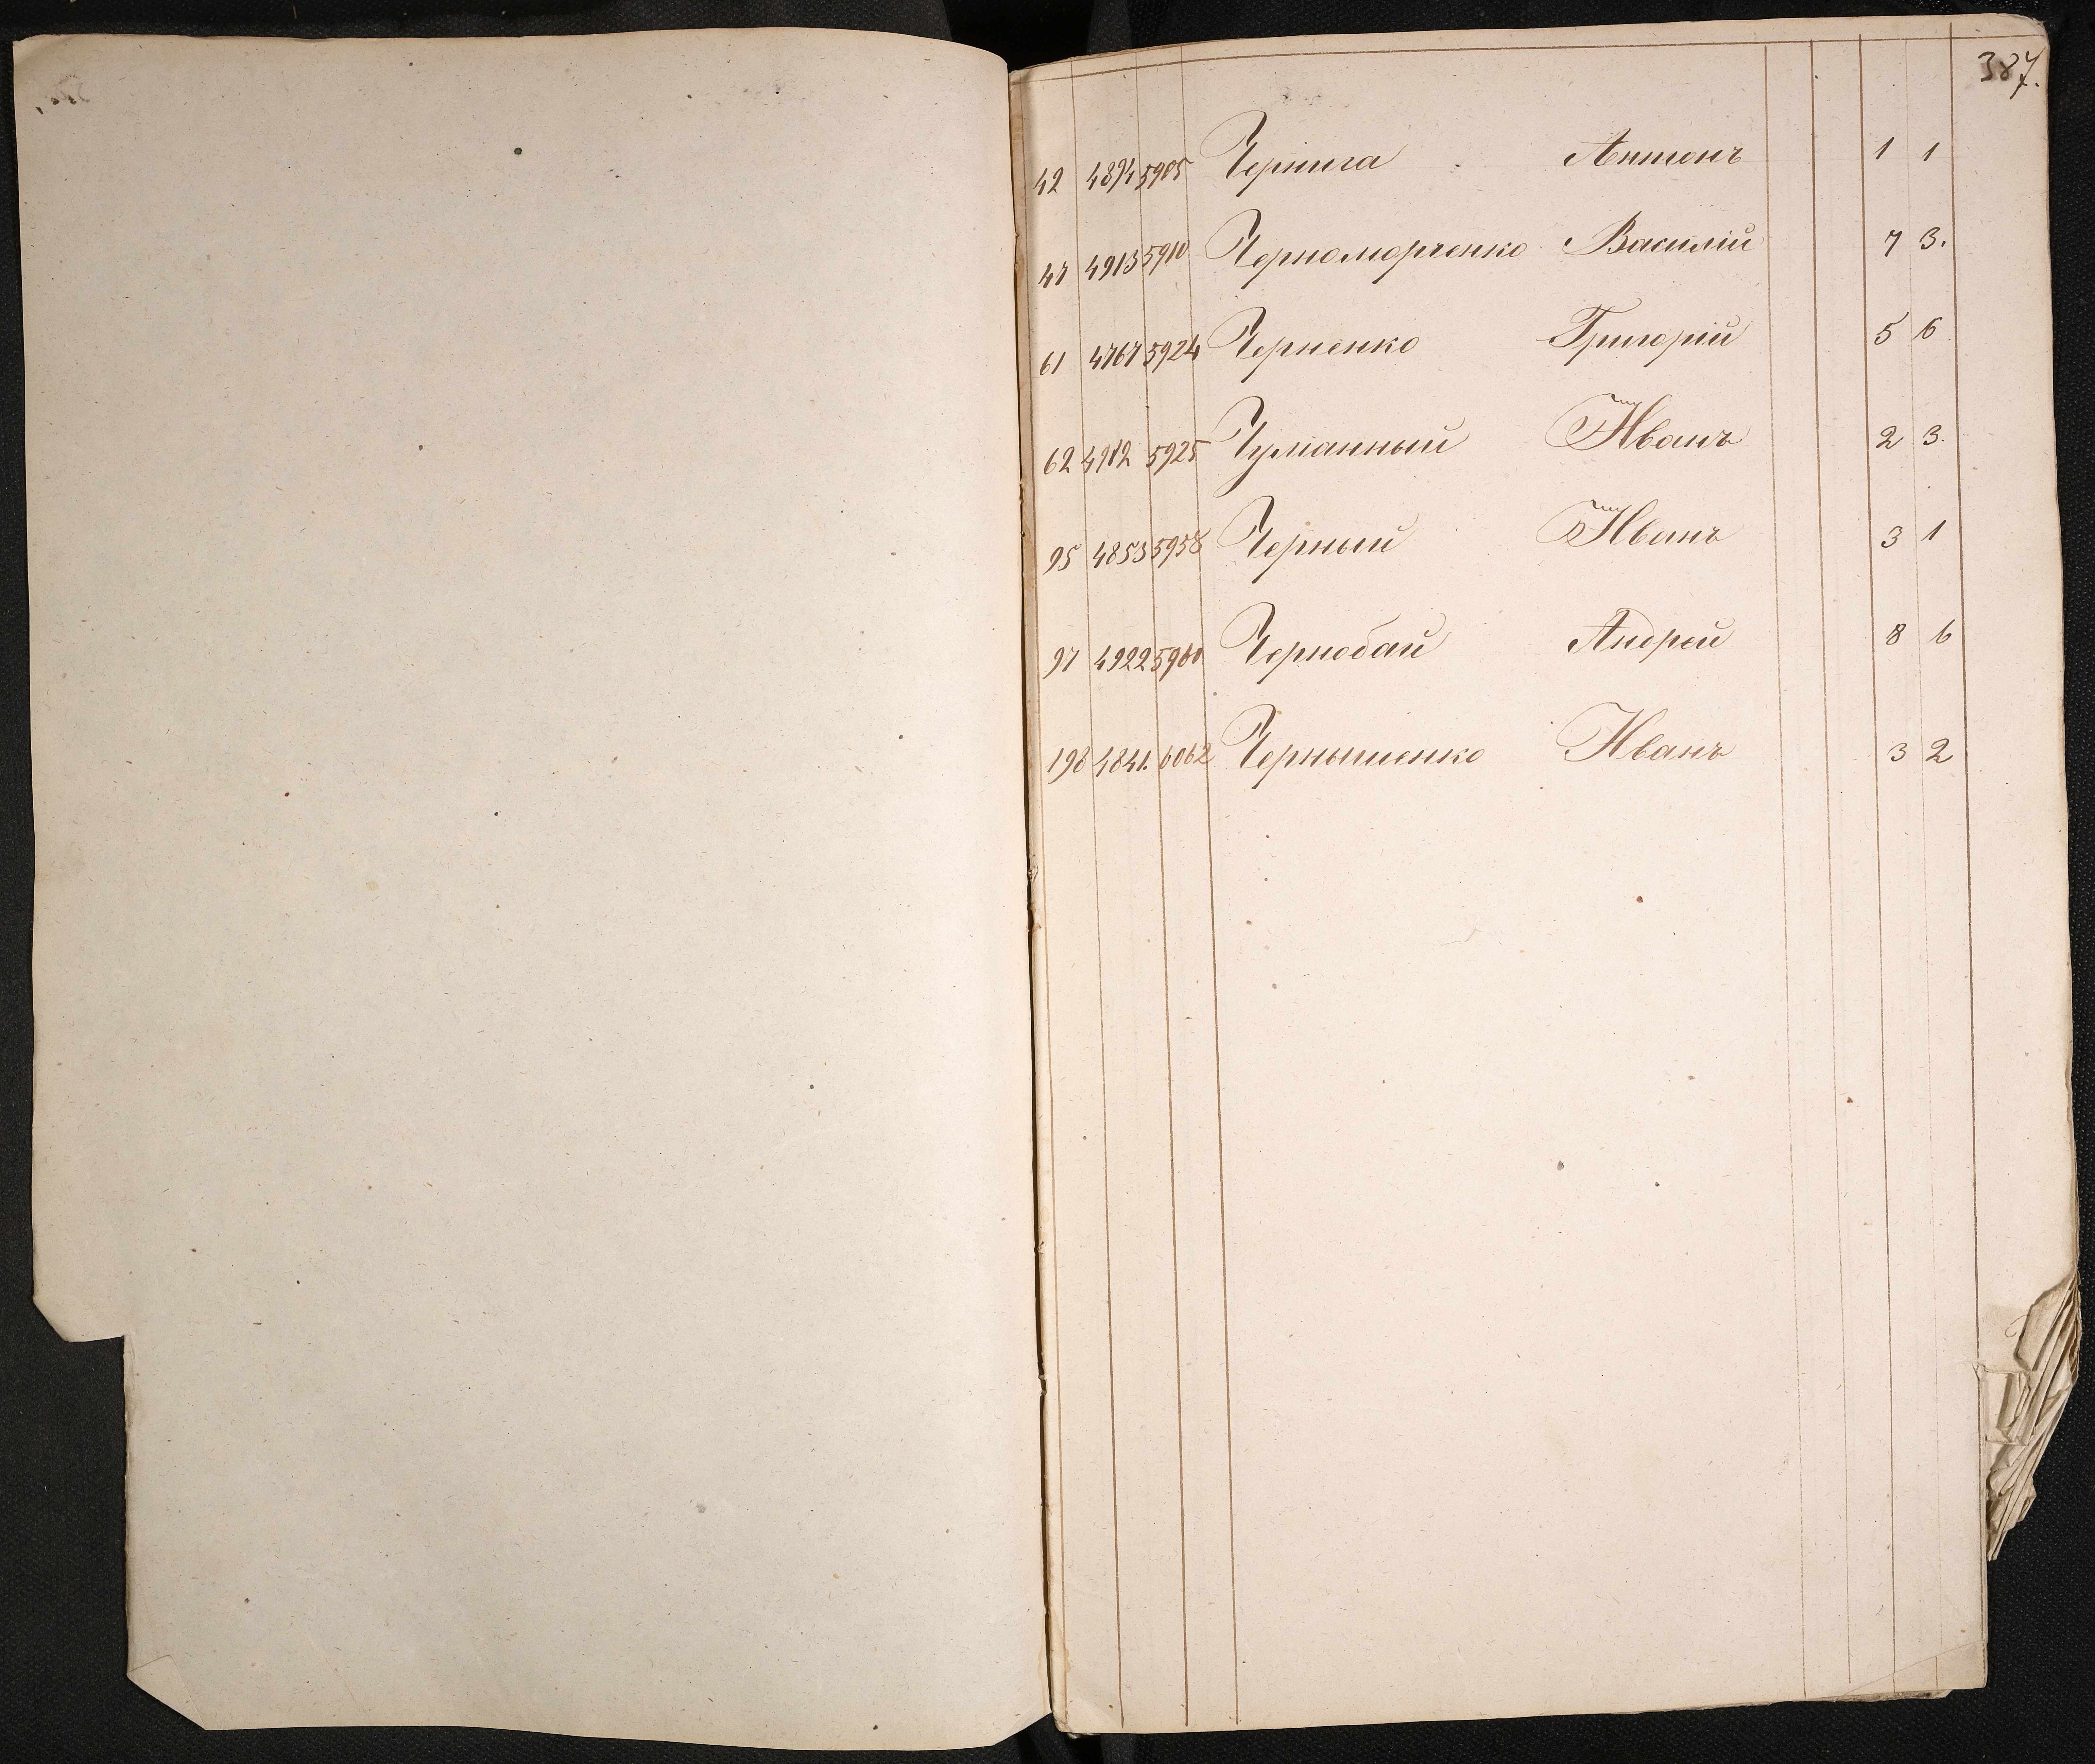 387.
42 4894 5905 Чернига Антонъ 1 1
47 4913 5910 Черноморченко Василій 7 3.
61 4767 5924 Черненко Григорій 5 6
62 4912 5925 Чуманный Иванъ 2 3.
95 4853 5958 Черный Иванъ 3 1
97 4922 5960 Чернобай Андрей 8 6
198 4841. 6062 Чернышенко Иванъ 3 2